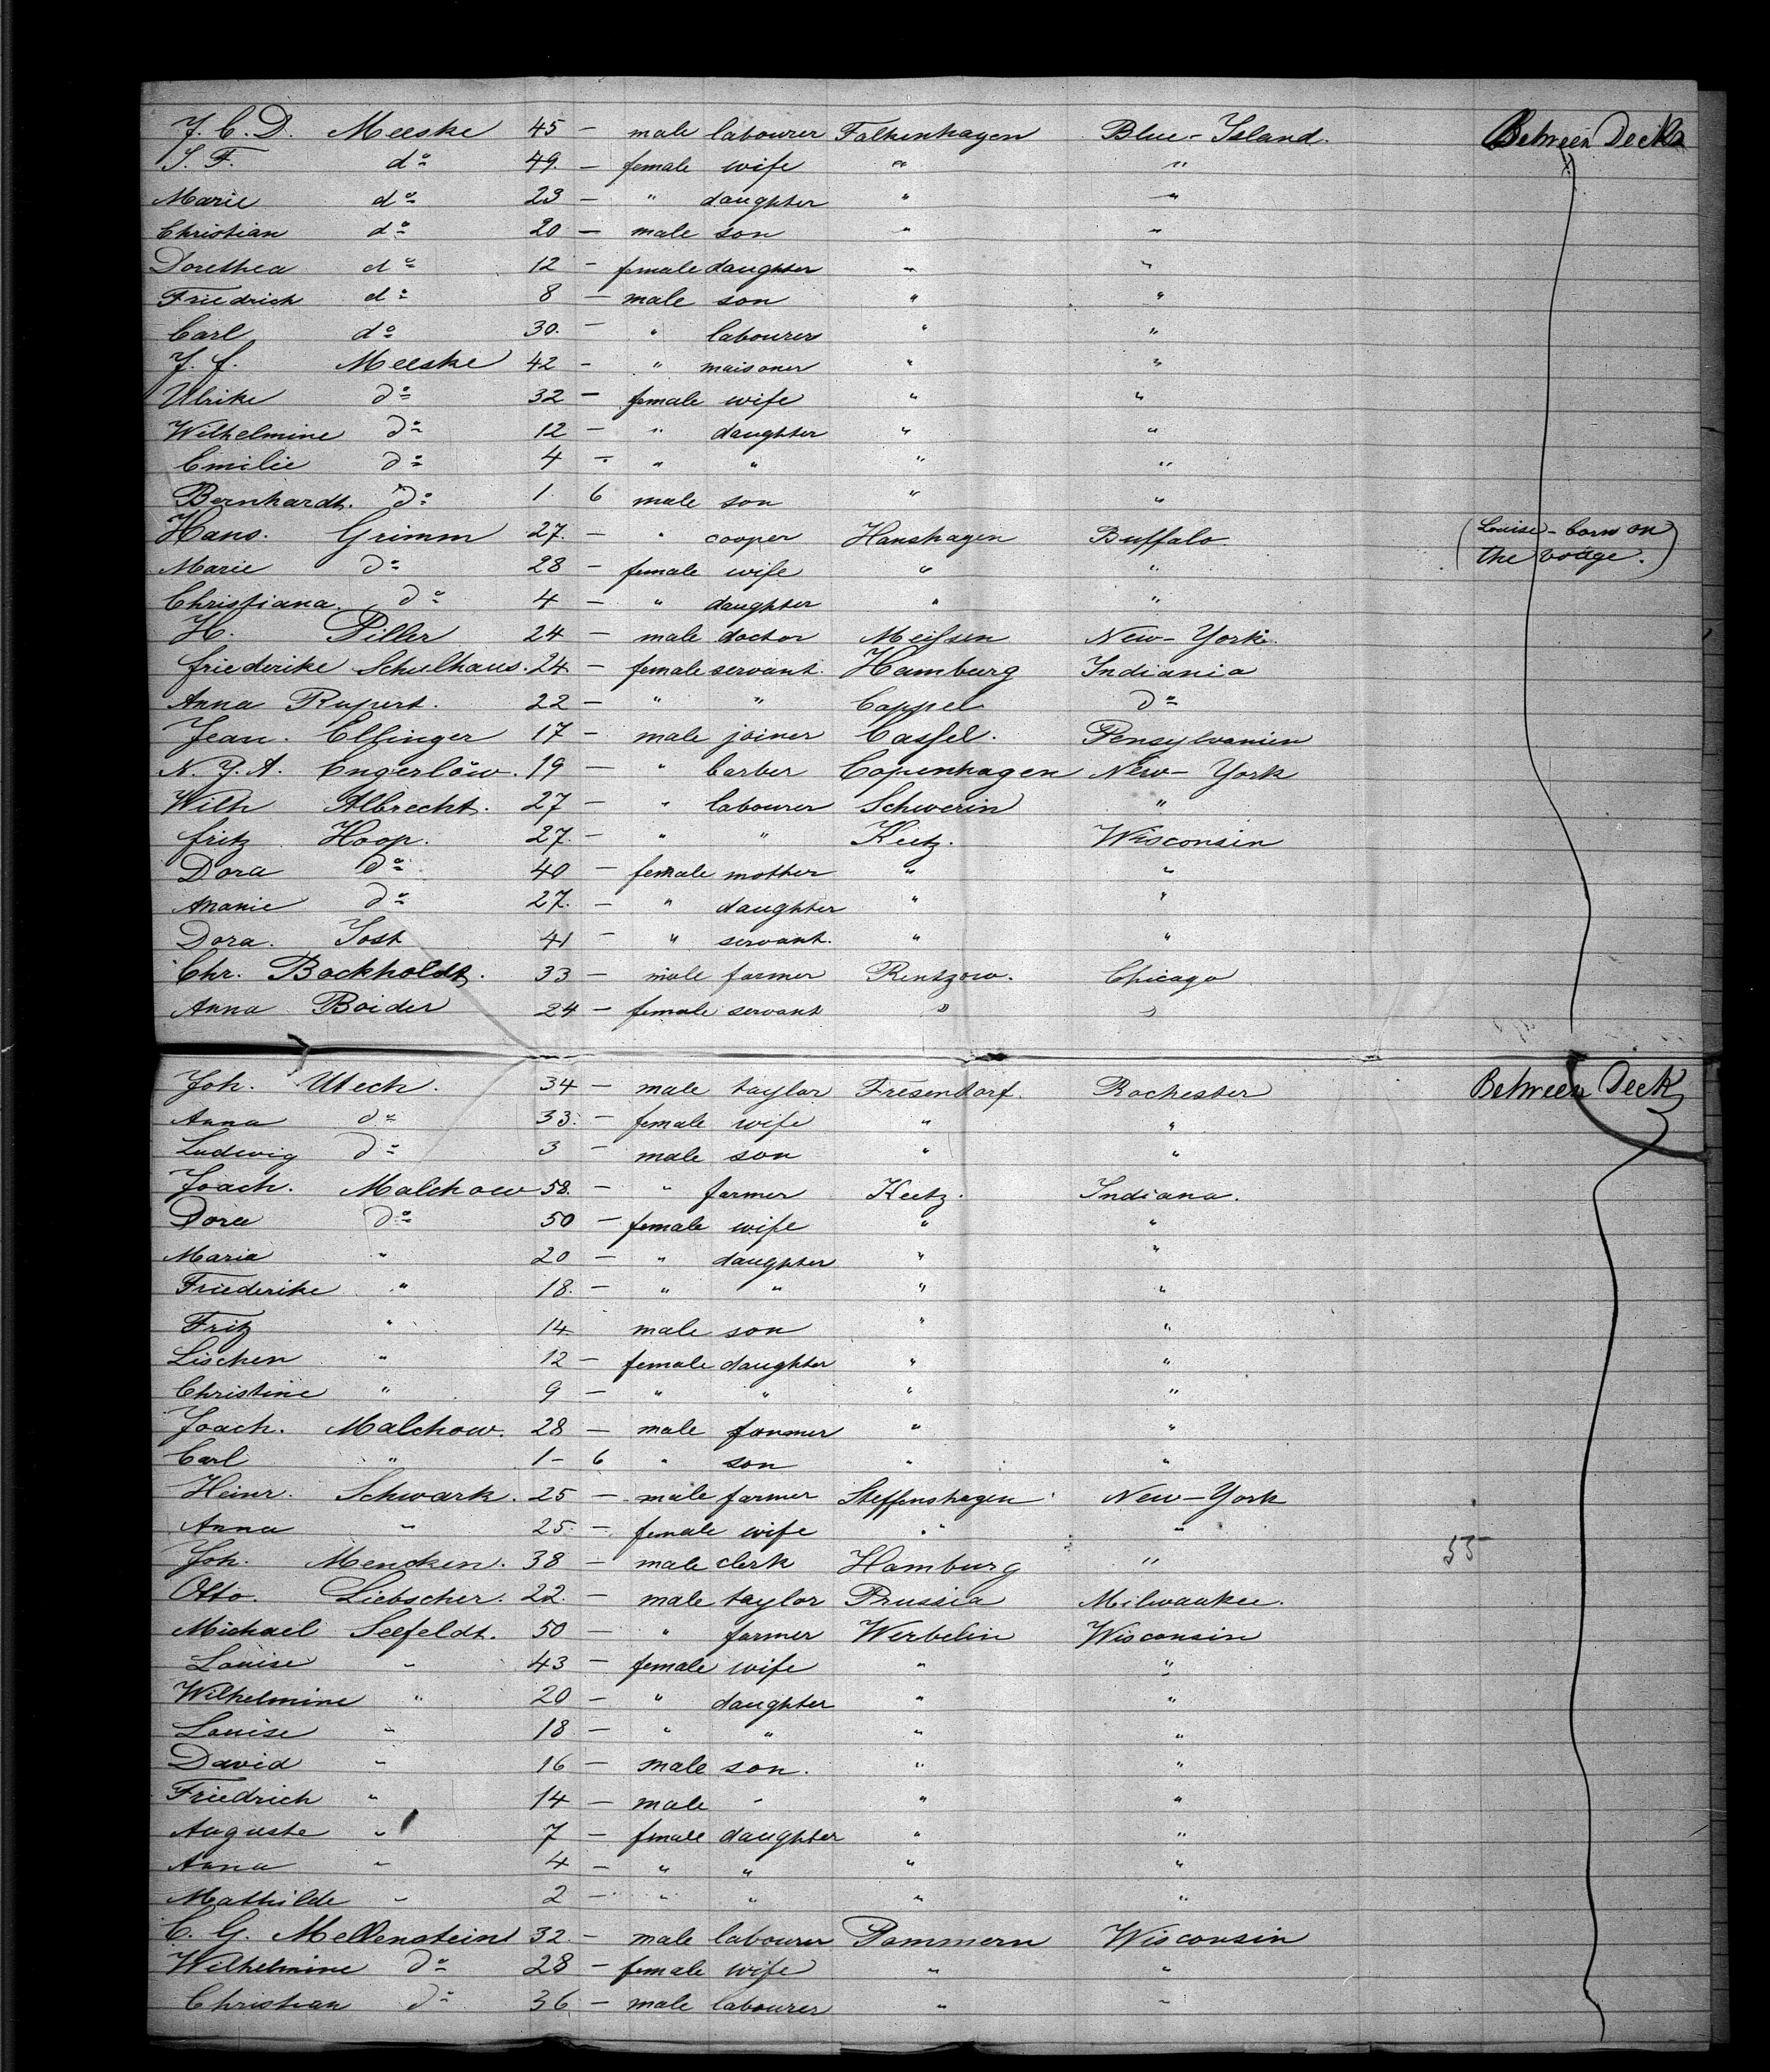 J. C. D. Meeske 45 — male labourer Falkenhagen Blue-Island. Between Deck
S. F. do 49. — female wife " "
Marie do 23 — " daughter " "
Christian do 20 — male son " "
Dorethea do 12 — female daughter " "
Friedrich do 8 — male son " "
Carl do 30. — " labourer " "
J. f. Meeske 42 — " maisoner " "
Ulrike do 32 — female wife " "
Wilhelmine do 12 — " daughter " "
Emilie do 4 — " " " "
Bernhardt. do 1. 6 male son " "
Hans. Grimm 27. — " cooper Hanshagen Buffalo. (Louise - born on
Marie do 28 — female wife " " the voüge.)
Christiana. do 4 — " daughter " "
H. Piller 24 — male doctor Meissen New-York.
friederike Schulhaus. 24 — female servant. Hamburg Indiania
Anna Rupert. 22 — " " Cappel do
Jean. Ellinger 17 — male joiner Cassel. Pensylvanien
N. J. A. Engerlöw. 19 — " barber Copenhagen New-York
Wilh Albrecht. 27 — " labourer Schwerin "
fritz Hoop. 27. — " " Keetz. Wisconsin
Dora do 40 — female mother " "
do 27. — " daughter " "
Dora. Jost 41 — " servant. " "
Chr. Bockholdt. 33 — male farmer Rentzow. Chicago
Anna Boider 24 — female servant " "
Joh. Utech. 34 — male taylor Fresendorf. Rochester Between Deck
Anna do 33. — female wife " "
Ludewig do 3 — male son " "
Joach. Malchow 58. — " farmer Keetz. Indiana.
Dora do 50 — female wife " "
Maria " 20 — " daughter " "
Friederike " 18. — " " " "
Fritz " 14 male son " "
Lischen " 12 — female daughter " "
Christine " 9 — " " " "
Joach. Malchow. 28 — male farmer " "
Carl " 1 — 6 " son " "
Heinr. Schwark. 25 — male farmer Steffenshagen New-York
Anna " 25. — female wife " "
Joh. Mencken. 38 — male clerk Hamburg " 55
Otto. Liebscher. 22. — male taylor Prussia Milwaukee.
Michael Seefeldt. 50 — " farmer Werbelin Wisconsin
Louise " 43 — female wife " "
Wilhelmine " 20 — " daughter " "
Louise " 18 — " " " "
David " 16 — male son. " "
Friedrich " 14 — male " " "
Auguste " 7 — female daughter " "
Anna " 4 — " " " "
Mathilde " 2 — " " " "
C. G. Mellenstein 32. — male labourer Pommern Wisconsin
Wilhelmine do 28 — female wife " "
Christian do 36 — male labourer " "